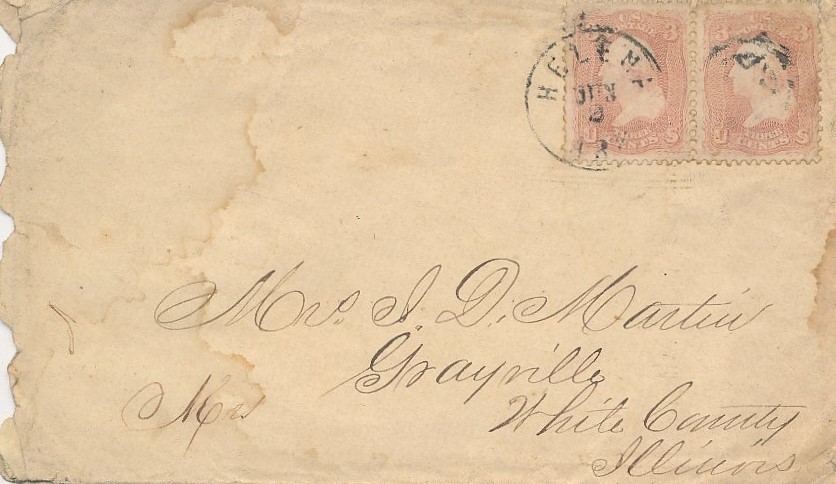 U.S. 3 U.S. 3
HELENA
JUN
2
ARK
U THREE CENTS S U THREE CENTS S
Mrs. J. D. Martin
Grayville
Mrs White County
Illinois